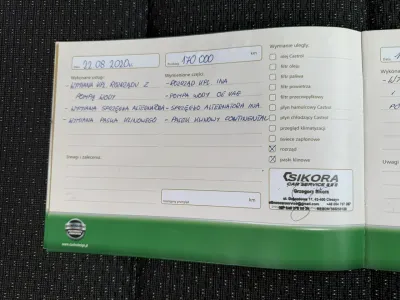 22.08.2020r
170 000 km
Wykonane usługi:
Wykorzystane części:
Wymianie uległy:
- WYMIANA KPL ROZRZĄDU Z
POMPĄ WODY
- WYMIANA SPRZĘGŁA ALTERNATORA
- WYMIANA PASKA KLINOWEGO
- ROZRZĄD KPL. INA
- POMPA WODY
- SPRZĘGŁO ALTERNATORA INA
- PASEK KLINOWY CONTINENTAL
olej Castrol
filtr oleju
filtr paliwa
filtr powietrza
filtr przeciwpyłkowy
płyn hamulcowy Castrol
płyn chłodzący Castrol
przegląd klimatyzacji
świece zapłonowe
rozrząd
paski klinowe
Uwagi i zalecenia:
km
SIKORA
CAR SERVICE
Grzegorz Sikora